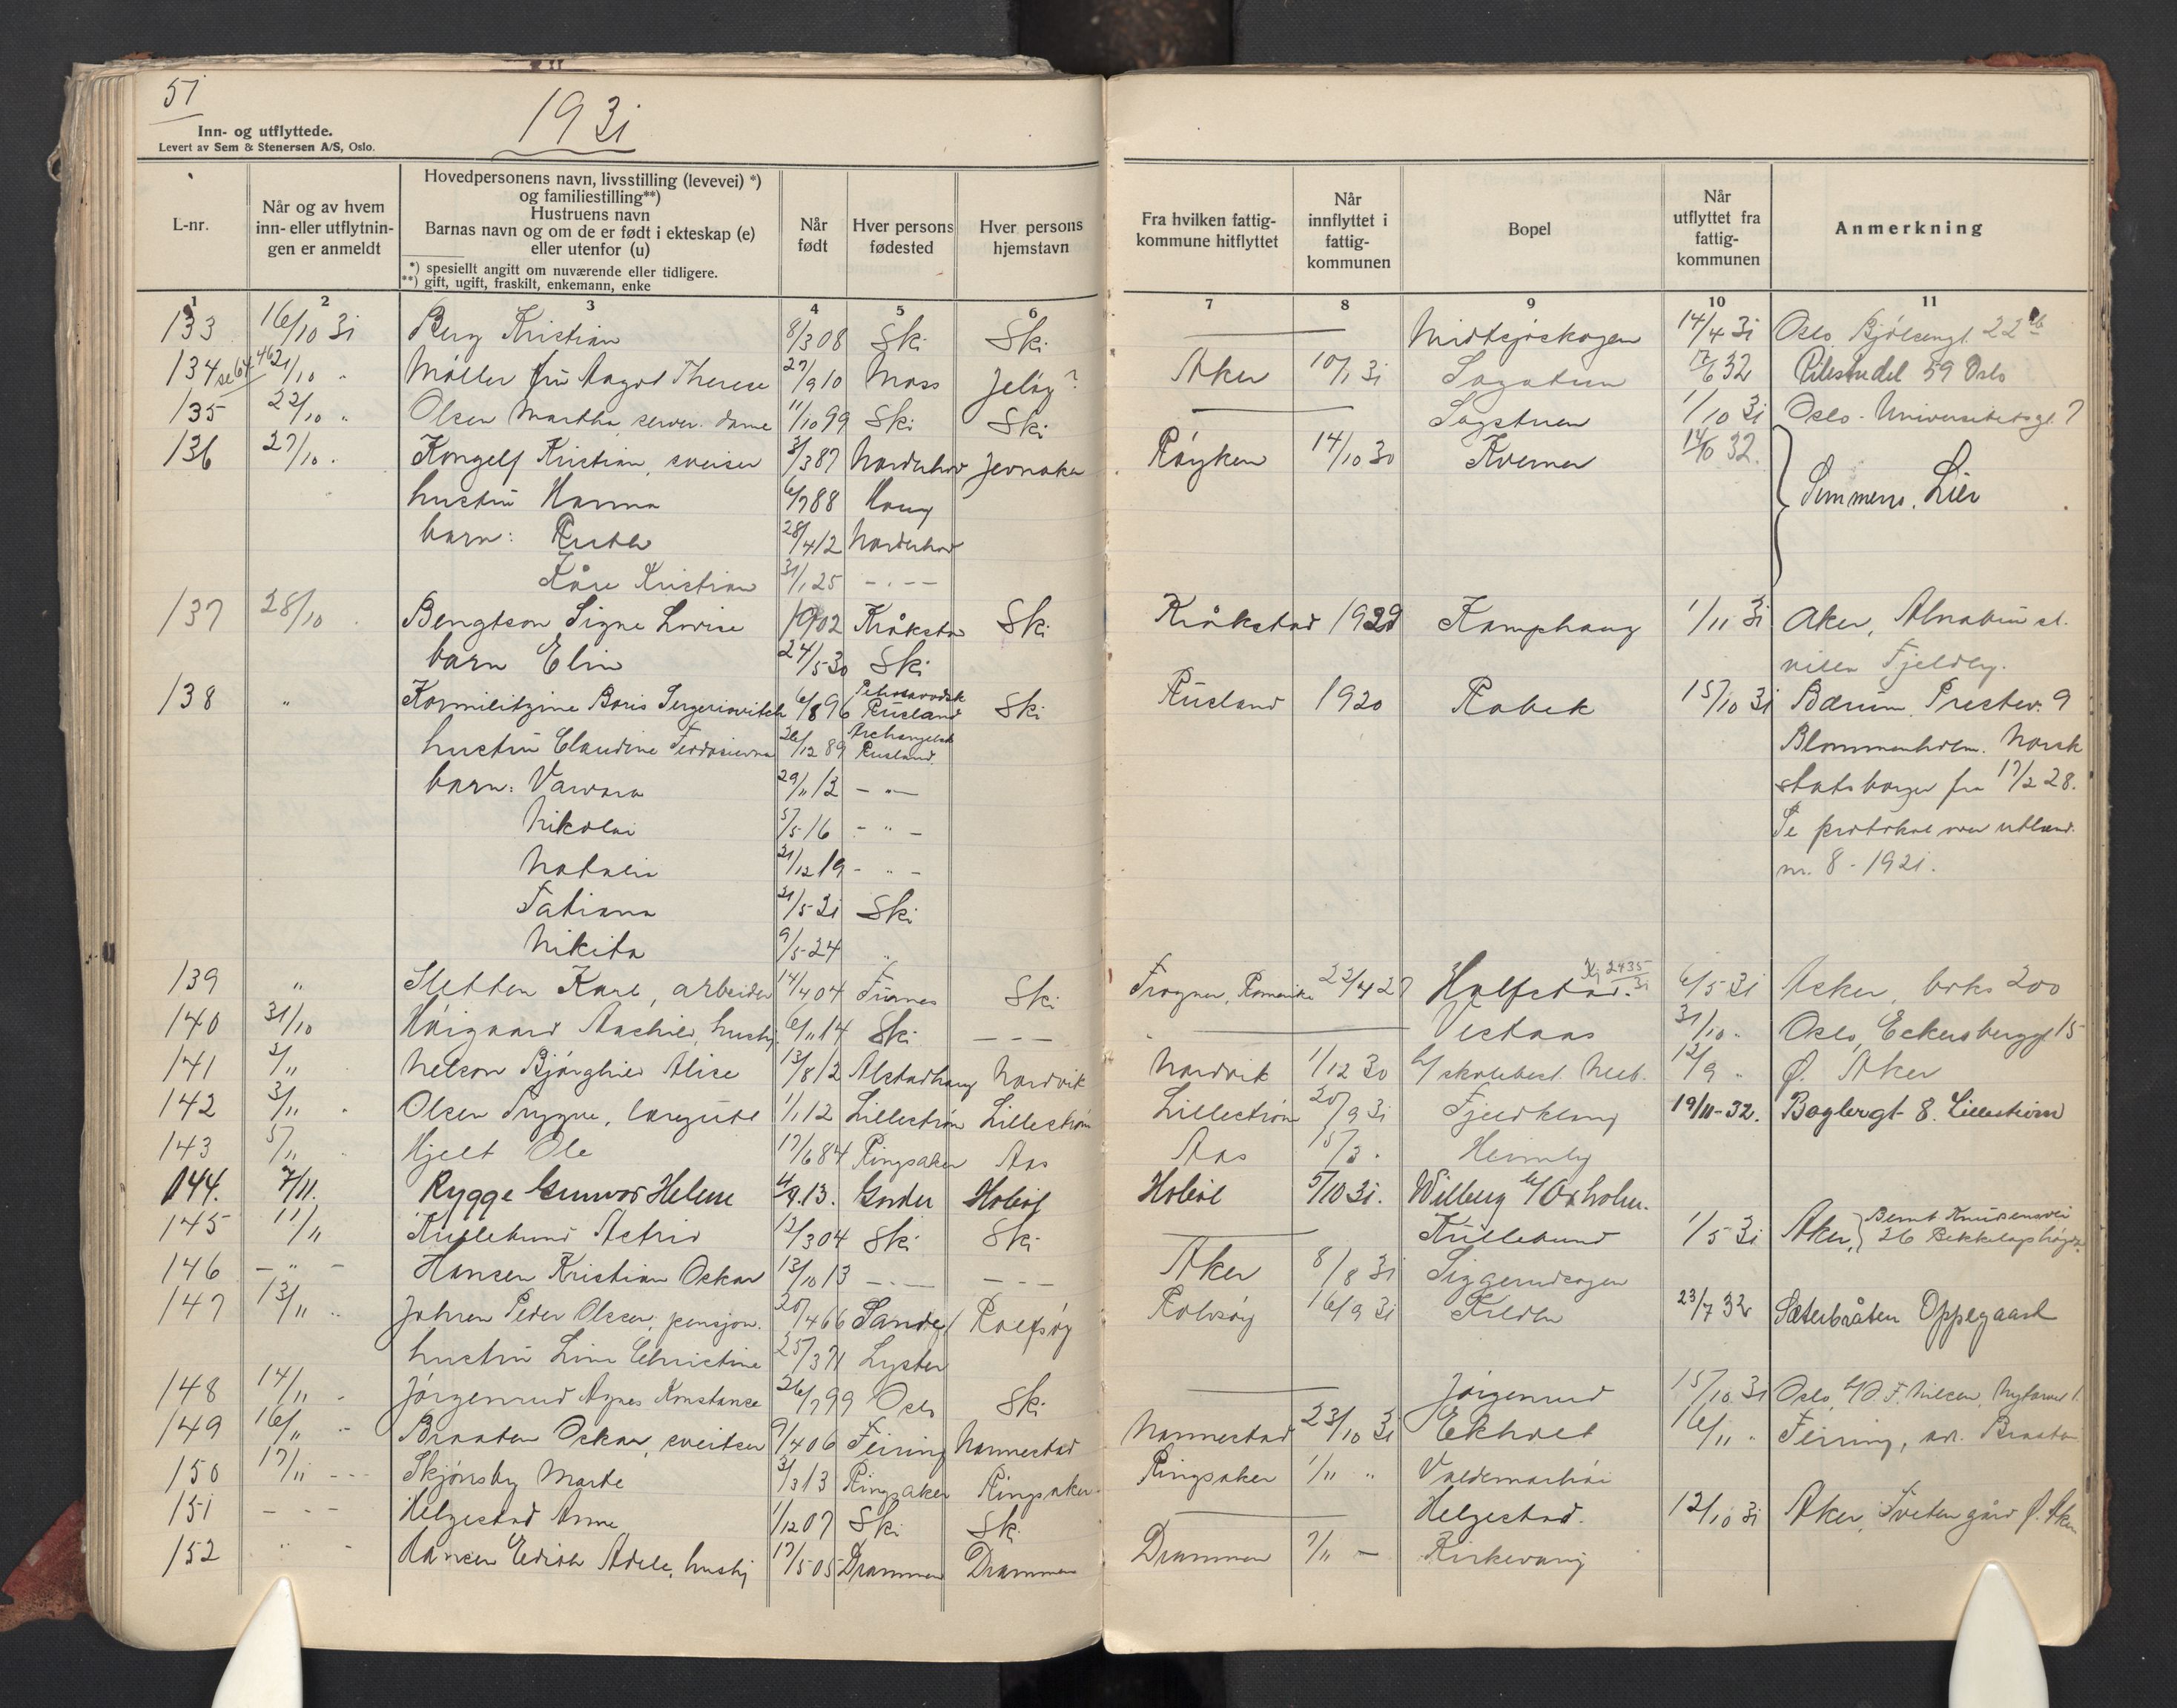 51
1931
Inn- og utflyttede.
Levert av Sem & Stenersen A/S, Oslo.
L-nr.
Når og av hvem inn- eller utflytnin-gen er anmeldt
Hovedpersonens navn, livsstilling (levevei) *) og familiestilling**)
Hustruens navn
Barnas navn og om de er født i ekteskap (e) eller utenfor (u)
*) spesielt angitt om nuværende eller tidligere.
**) gift, ugift, fraskilt, enkemann, enke
Når født
Hver persons fødested
Hver persons hjemstavn
Fra hvilken fattig-kommune hitflyttet
Når innflyttet i fattig-kommunen
Bopel
Når utflyttet fra fattig-kommunen
Anmerkning
1 2 3 4 5 6 7 8 9 10 11
133 16/10 31 Berg Kristian 8/3 08 Ski Ski — Midtsjøskogen 14/4 31 Oslo, Bjølsengt. 22 b
134 se 64/46 21/10 " Møller fru Aagot Therese 27/9 10 Moss Jeløy? Aker 10/1 31 Sagatun 17/6 32 Pilestredet 59 Oslo
135 22/10 " Olsen Martha, server. dame 11/10 99 Ski Ski — Sagstuen 1/10 31 Oslo - Universitetsgt. 7
136 27/10 " Kongelf Kristian, sveiser 3/3 87 Norderhov Jevnaker Røyken 14/10 30 Kverner 14/6 32 } Semmens, Lier
hustru Hanna 6/7 88 Haug
barn: Ruth 28/4 12 Norderhov
Kåre Kristian 31/1 25 - " -
137 28/10 Bengtson Signe Lovise 1902 Kråkstad Ski Kråkstad 1929 Kamphaug 1/11 31 Aker, Alnabru st.
barn Elin 24/5 30 Ski villa Fjeldby.
138 " Kormilitzine Boris Sergeriovitch 6/8 96 Petrosavodsk Rusland Ski Rusland 1920 Robek 15/10 31 Bærum, Prestev. 9
hustru Claudine Feodosievna 26/12 89 Archangelsk Rusland Blommenholm. Norsk
barn: Varvara 29/11 13 - " - statsborger fra 17/2 28.
Nikolai 5/5 16 - " - Se protokol over utlænd.
Natalie 21/12 19 - " - nr. 8 - 1921.
Tatiana 21/5 21 Ski
Nikita 9/5 24 "
139 " Sletten Karl, arbeider 14/4 04 Furnes Ski Frogner, Romerike 22/4 27 Halfstad. Kj 2435/31 6/5 31 Asker, boks 200
140 31/10 Høigaard Aashild, hushj. 6/11 14 Ski - - - — Vestaas 31/10 " Oslo, Eckersbergsgt 15
141 3/11 Nelson Bjørghild Alice 13/8 12 Alstadhaug Nordvik Nordvik 1/12 30 b/ skolebest. Neeb. 12/9 " Ø. Aker
142 3/11 " Olsen Trygve, læregutt 1/1 12 Lillestrøm Lillestrøm Lillestrøm 20/9 31 Fjeldklang 19/11-32. Boglergt 8. Lillestrøm
143 5/11 " Hjelt Ole 17/6 84 Ringsaker Aas Aas 15/3 " Heimly
144. 7/11. Rygge Gunvor Helene 4/9.13. Hobøl Hobøl 5/10 31. Wilberg b/ Oxholm.
145 11/11 Kullebund Astrid 12/3 04 Ski Ski — Kullebund 1/5 31 Aker, } Bernt Knudsensvei 26 Bekkelagshøgda
146 - " - Hansen Kristian Oskar 13/10 13 - " - - - - Aker 8/8 31 Siggerudsagen
147 13/11 " Johren Peder Olsen, pensjon. 20/4 66 Sande Rolfsøy Rolvsøy 16/9 31 Kilden 23/7 32 Sæterbråten Oppegaard
hustru Lina Christine 25/3 71 Lyster
148 14/11 " Jørgenrud Agnes Konstance 26/7 99 Oslo Ski — Jørgenrud 15/10 31 Oslo, b/ O. F. Nilsen,
149 16/11 " Braaten Oskar, sveitser 9/4 06 Feiring Nannestad Nannestad 23/10 31 Ekholt 16/11 " Feiring, adr. Braaten
150 17/11 - - Skjønsby Marte 3/3 13 Ringsaker Ringsaker Ringsaker 1/11 " Valdemarhøi
151 - - - Helgestad Arne 1/12 07 Ski Ski — Helgestad. 12/10 31 Aker, Tveten gård Ø. Aker
152 " - Hansen Edith Adele, hushj 17/5 05 Drammen Drammen Drammen 7/11 - Kirkevang